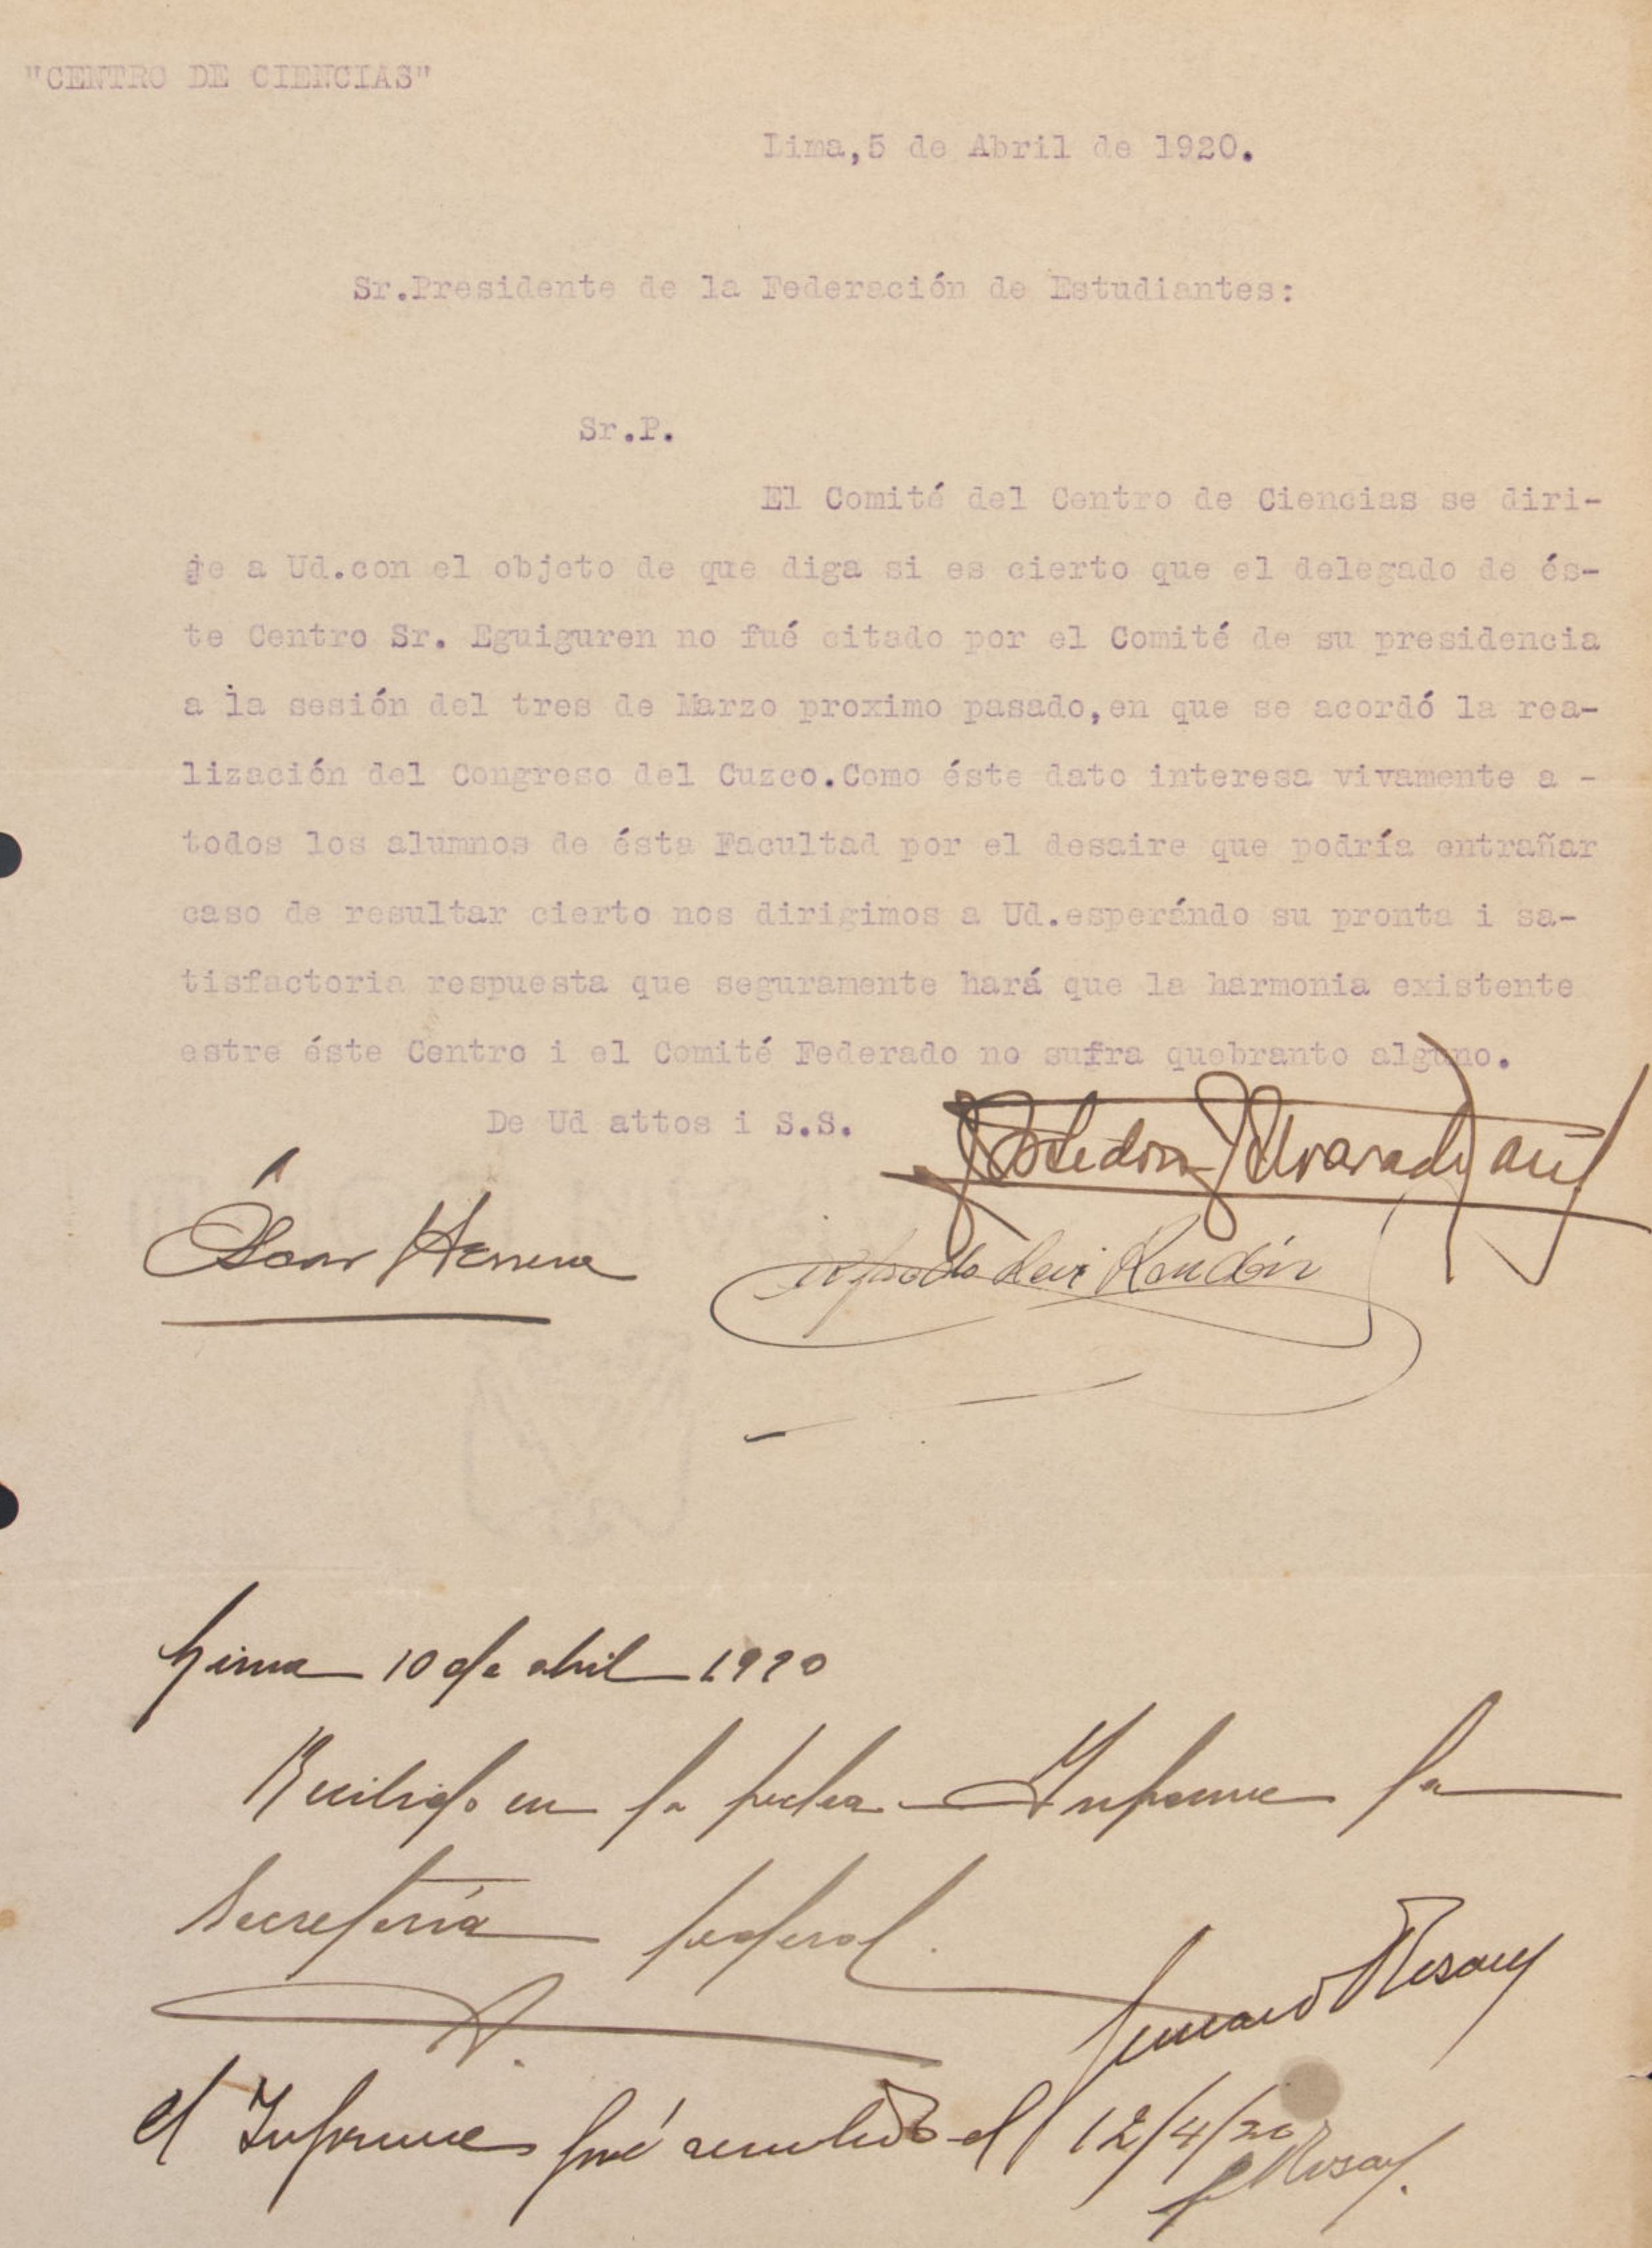 "CENTRO DE CIENCIAS"
Lima,5 de Abril de 1920.
Sr.Presidente de la Federación de Estudiantes:
Sr.P.
El Comité del Centro de Ciencias se diri-
je a Ud.con el objeto de que diga si es cierto que el delegado de és-
te Centro Sr. Eguiguren no fué citado por el Comité de su presidencia
a la sesión del tres de Marzo proximo pasado,en que se acordó la rea-
lización del Congreso del Cuzco.Como éste dato interesa vivamente a -
todos los alumnos de ésta Facultad por el desaire que podría entrañar
caso de resultar cierto nos dirigimos a Ud.esperándo su pronta i sa-
tisfactoria respuesta que seguramente hará que la harmonia existente
estre éste Centro i el Comité Federado no sufra quebranto alguno.
De Ud attos i S.S.
Oscar Herrera
Lima 10 de abril 1920
Recibido en la fecha - Informe la
Secretaría federal.
el Informe fué remitido el 12/4/20